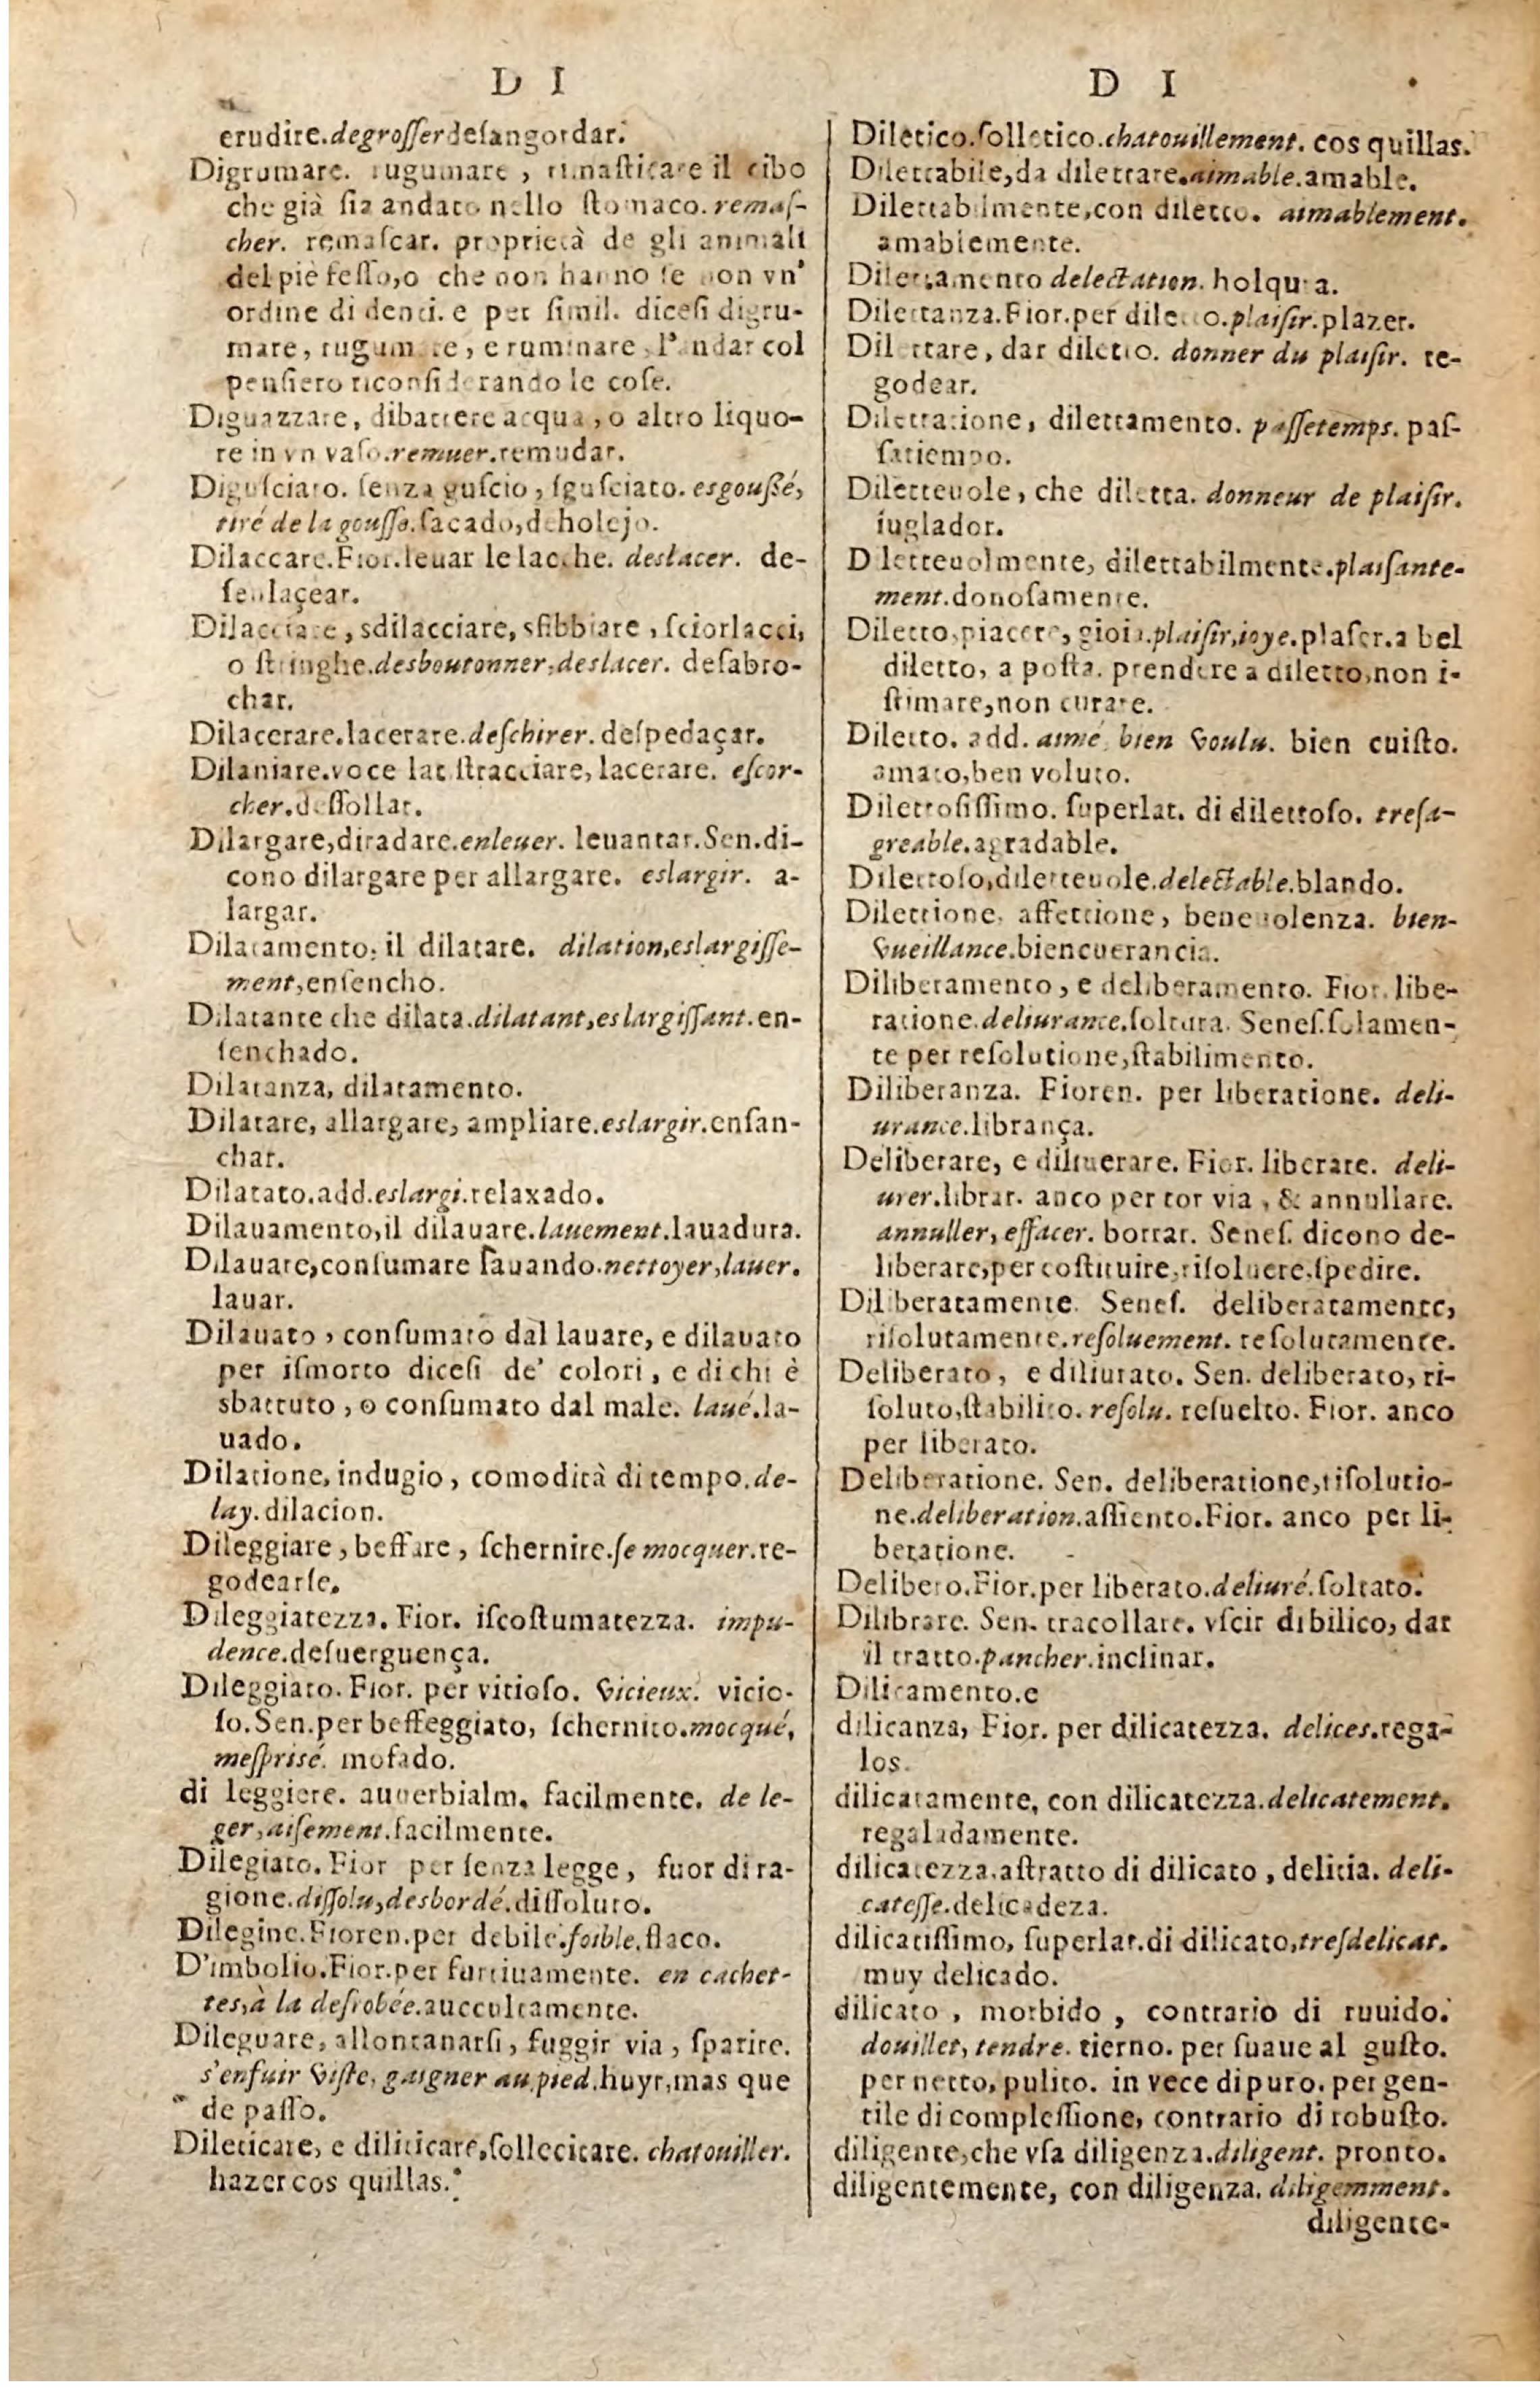 D I
erudire.degroſſer deſangordar.
Digrumare. rugumare, rimaſticare il cibo
che già ſia andato nello ſtomaco. remaſ-
cher. remaſcar. proprietà de gli animali
del piè feſſo,o che non hanno ſe non vn'
ordine di denti. e per ſimil. diceſi digru-
mare, rugumare, e ruminare, l'andar col
penſiero riconſiderando le coſe.
Diguazzare, dibattere acqua, o altro liquo-
re in vn vaſo.remuer.remudar.
Diguſciato. ſenza guſcio, ſguſciato. esgoußé,
tiré de la gouſſe.ſacado,deholejo.
Dilaccare.Fior.leuar le lacche. deslacer. de-
ſenlaçear.
Dilacciare, sdilacciare, sfibbiare, ſciorlacci,
o ſtringhe.desboutonner,deslacer. deſabro-
char.
Dilacerare.lacerare.deſchirer. deſpedaçar.
Dilaniare.voce lat.ſtracciare, lacerare. eſcor-
cher.deſſollar.
Dilargare,diradare.enleuer. leuantar.Sen.di-
cono dilargare per allargare. eslargir. a-
largar.
Dilatamento, il dilatare. dilation,eslargiſſe-
ment,enſencho.
Dilatante che dilata.dilatant,eslargiſſant.en-
ſenchado.
Dilatanza, dilatamento.
Dilatare, allargare, ampliare.eslargir.enſan-
char.
Dilatato.add.eslargi.relaxado.
Dilauamento,il dilauare.lauement.lauadura.
Dilauare,conſumare lauando.nettoyer,lauer.
lauar.
Dilauato, conſumato dal lauare, e dilauato
per iſmorto diceſi de' colori, e di chi è
sbattuto, o conſumato dal male. laué.la-
uado.
Dilatione, indugio, comodità di tempo.de-
lay.dilacion.
Dileggiare, beffare, ſchernire.ſe mocquer.re-
godearſe.
Dileggiatezza. Fior. iſcoſtumatezza. impu-
dence.deſuerguença.
Dileggiato. Fior. per vitioſo. vicieux. vicio-
ſo.Sen.per beffeggiato, ſchernito.mocqué,
meſprisé. mofado.
di leggiere. auuerbialm. facilmente. de le-
ger,aiſement.facilmente.
Dilegiato. Fior per ſenza legge, fuor di ra-
gione.diſſolu,desbordé.diſſoluto.
Dilegine.Fioren.per debile.foible.flaco.
D'imbolio.Fior.per furtiuamente. en cachet-
tes,à la deſrobée.auccultamente.
Dileguare, allontanarſi, fuggir via, ſparire.
s'enfuir viſte, gaigner au pied.huyr,mas que
de paſſo.
Dileticare, e diliticare,ſollecitare. chatouiller.
hazer cos quillas.
D I
Diletico.ſolletico.chatouillement. cos quillas.
Dilettabile,da dilettare.aimable.amable.
Dilettabilmente,con diletto. aimablement.
amablemente.
Dilettamento delectation. holqura.
Dilettanza.Fior.per diletto.plaiſir.plazer.
Dilettare, dar diletto. donner du plaiſir. re-
godear.
Dilettatione, dilettamento. paſſetemps. paſ-
ſatiempo.
Diletteuole, che diletta. donneur de plaiſir.
iuglador.
Diletteuolmente, dilettabilmente.plaiſante-
ment.donoſamente.
Diletto,piacere, gioia.plaiſir,ioye.plaſer.a bel
diletto, a poſta. prendere a diletto,non i-
ſtimare,non curare.
Diletto. add. aimé, bien voulu. bien cuiſto.
amato,ben voluto.
Dilettoſiſſimo. ſuperlat. di dilettoſo. treſa-
greable.agradable.
Dilettoſo,diletteuole.delectable.blando.
Dilettione, affettione, beneuolenza. bien-
vueillance.biencuerancia.
Diliberamento, e deliberamento. Fior. libe-
ratione.deliurance.ſoltura. Seneſ.ſolamen-
te per reſolutione,ſtabilimento.
Diliberanza. Fioren. per liberatione. deli-
urance.librança.
Deliberare, e diliuerare. Fior. liberare. deli-
urer.librar. anco per tor via, & annullare.
annuller, effacer. borrar. Seneſ. dicono de-
liberare,per coſtituire,riſoluere,ſpedire.
Diliberatamente. Seneſ. deliberatamente,
riſolutamente.reſoluement. reſolutamente.
Deliberato, e diliurato. Sen. deliberato, ri-
ſoluto,ſtabilito. reſolu. reſuelto. Fior. anco
per liberato.
Deliberatione. Sen. deliberatione,riſolutio-
ne.deliberation.aſſiento.Fior. anco per li-
beratione.
Delibero.Fior.per liberato.deliuré.ſoltato.
Dilibrare. Sen. tracollare. vſcir di bilico, dar
il tratto.pancher.inclinar.
Dilicamento.e
dilicanza, Fior. per dilicatezza. delices.rega-
los.
dilicatamente, con dilicatezza.delicatement.
regaladamente.
dilicatezza.aſtratto di dilicato, delitia. deli-
cateſſe.delicadeza.
dilicatiſſimo, ſuperlat.di dilicato,treſdelicat.
muy delicado.
dilicato, morbido, contrario di ruuido.
douillet, tendre. tierno. per ſuaue al guſto.
per netto, pulito. in vece di puro. per gen-
tile di compleſſione, contrario di robuſto.
diligente,che vſa diligenza.diligent. pronto.
diligentemente, con diligenza. diligemment.
diligente-